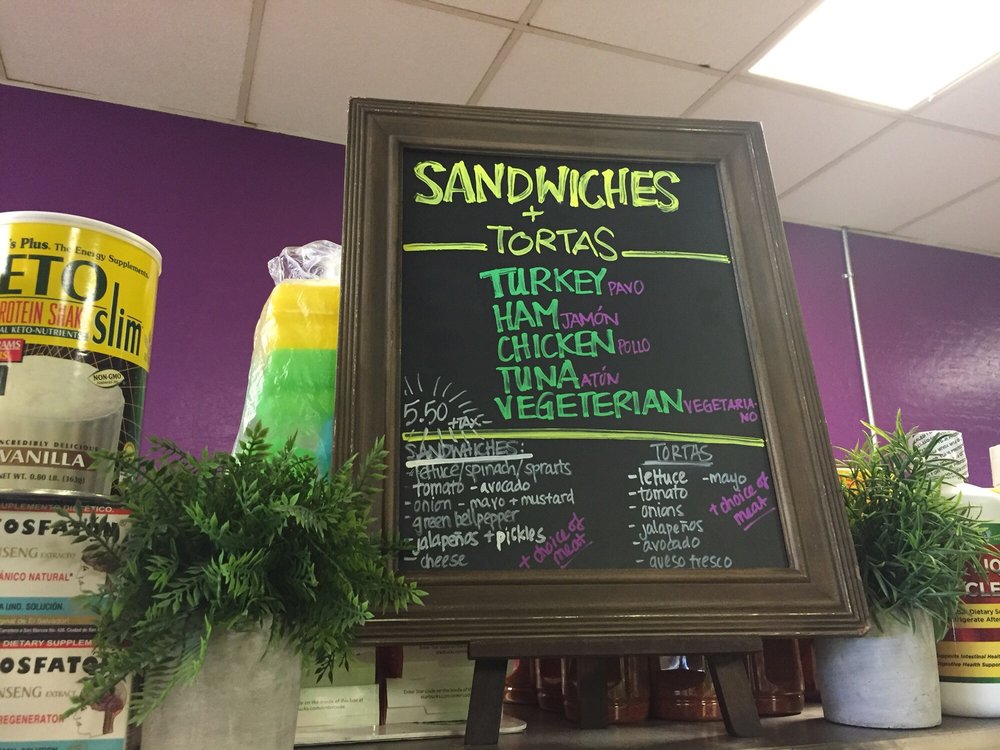 SANDWICHES
+
TORTAS
TURKEY PAVO
HAM JAMÓN
CHICKEN POLLO
TUNA ATÚN
VEGETERIAN VEGETARIA-
NO
5.50
+TAX-
SANDWICHES:
- lettuce/spinach/sprouts
- tomato - avocado
- onion - mayo + mustard
- green bellpepper
- jalapeños + pickles
- cheese
+ choice of
meat
TORTAS
- lettuce - mayo
- tomato
- onions
- jalapeños
- avocado
- queso fresco
+ choice of
meat
's Plus. The Energy Supplements.
ETO
PROTEIN SHAK
slim
AL KETO-NUTRIENTS
NON-GMO
INCREDIBLY DELICIOUS
VANILLA
NET WT. 0.80 LB. (363g)
SUPLEMENTO DIETETICO.
OSFATO
INSENG EXTRACTO
ÁNICO NATURAL
UNO. SOLUCIÓN.
DIETARY SUPPLEM
OSFATO
INSENG EXTRACT
REGENERATOR
CLE
Supports Intestinal Heal
Digestive Health Suppo